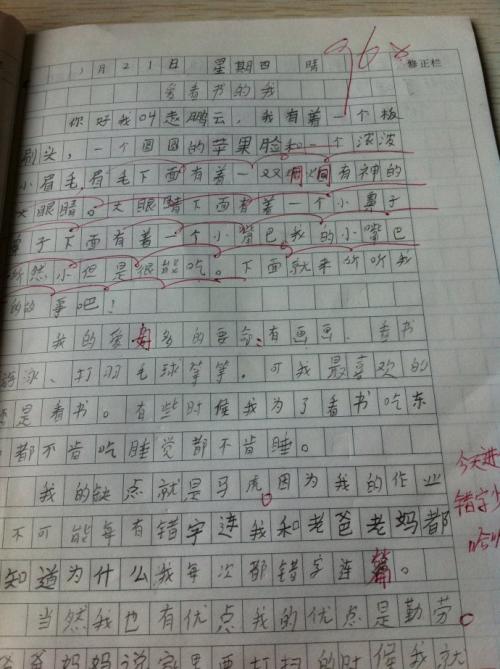 1月21日 星期四 晴
96分
修正栏
爱看书的我
你好我叫赵鹏云,我有着一个板
刷头,一个圆圆的苹果脸和一个浓浓
小眉毛,眉毛下面有着一双炯炯有神的
大眼睛。大眼睛下面有着一个小鼻子
鼻子下面有着一个小嘴巴,我的小嘴巴
虽然小但是很能吃。下面就来听听我
的的事吧!
我的爱好多的要命:有画画、看书
游泳、打羽毛球等等。可我最喜欢的
还是看书。有些时候我为了看书吃东
都不肯吃睡觉都不肯睡。
我的缺点就是马虎。因为我的作业
不可能每有错字连我和老爸老妈都
知道为什么我每次都错字连篇。
当然我也有优点我的优点是勤劳。
爸妈妈说家里要打扫的时候我就
今天进
错字少
哈